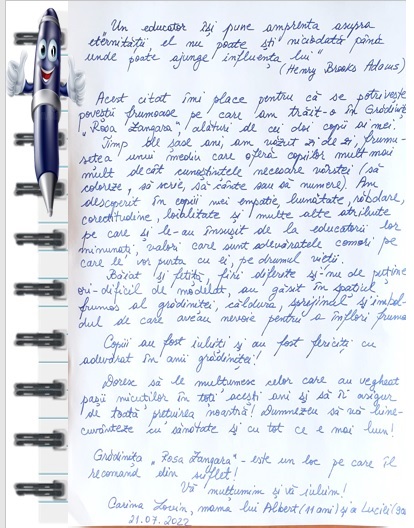 „Un educator își pune amprenta asupra
eternității, el nu poate ști niciodată până
unde poate ajunge influența lui”
(Henry Brooks Adams)
Acest citat îmi place pentru că se potrivește
poveștii frumoase pe care am trăit-o în Grădinița
"Rosa Zangara", alături de cei doi copii ai mei.
Timp de șase ani, am văzut zi de zi, frumu-
sețea unui mediu care oferă copiilor mult mai
mult decât cunoștințele necesare vârstei (să
coloreze, să scrie, să cânte sau să numere). Am
descoperit în copiii mei empatie, bunătate, răbdare,
corectitudine, loialitate și multe alte atribute
pe care și le-au însușit de la educatorii lor
minunați, valori care sunt adevăratele comori pe
care le vor purta cu ei, pe drumul vieții.
Băiat și fetiță, firi diferite și nu de puține
ori dificil de modelat, au găsit în spațiul
frumos al grădiniței, căldura, sprijinul și imbol-
dul de care aveau nevoie pentru a înflori frumos
Copiii au fost iubiți și au fost fericiți cu
adevărat în anii grădiniței!
Doresc să le mulțumesc celor care au vegheat
pașii micuților în toți acești ani și să îi asigur
de toată prețuirea noastră! Dumnezeu să vă bine-
cuvânteze cu sănătate și cu tot ce e mai bun!
Grădinița "Rosa Zangara" - este un loc pe care îl
recomand din suflet!
Vă mulțumim și vă iubim!
Carina, mama lui Albert (11 ani) și a Luciei
21.07.2022